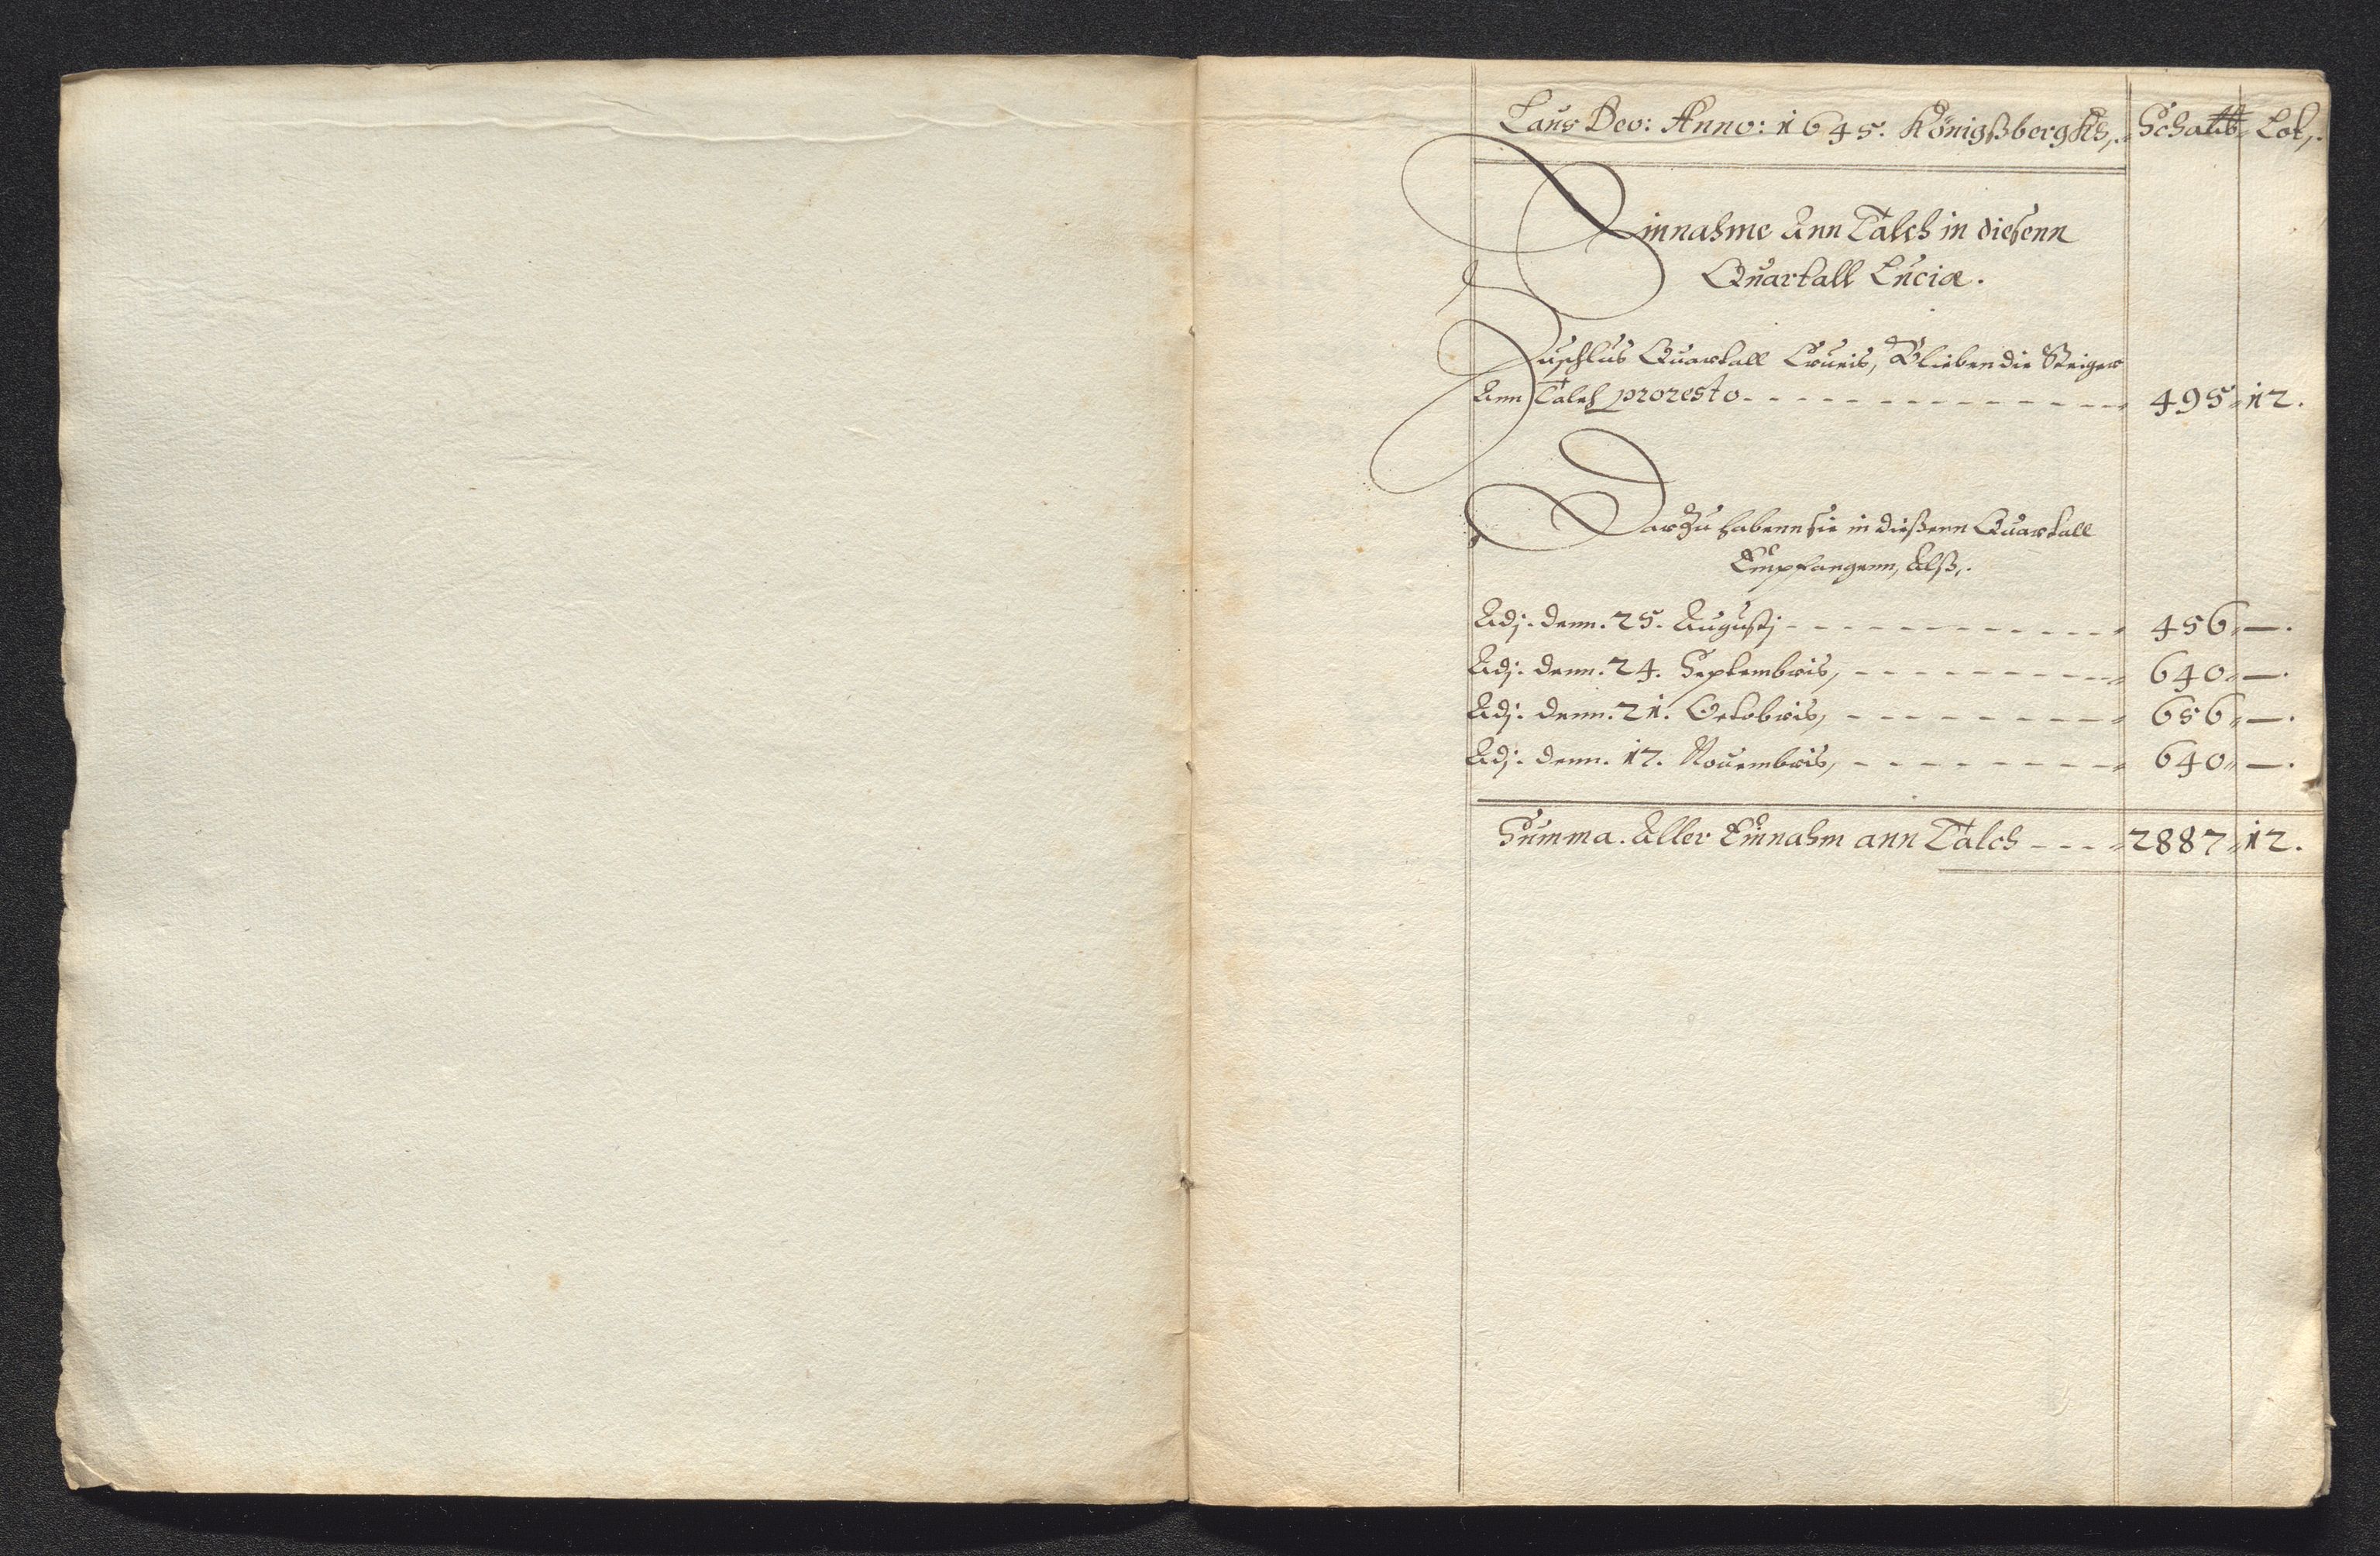 Laus Deo: Anno: 1645. Königßbergks,. Schalb Lot,.
Einnahme Ann Talch in dießenn
Quartall Luciæ.
Zuschlus Quartall Crucis, Blieben die Steiger
Ann Talch pro resto - - - - - 495 12.
Darzu habenn sie in dießenn Quartall
Empfangenn, Alß,.
Adj. denn. 25. Augustj - - - - - 456 —.
Adj. denn. 24. Septembris, - - - - - 640 —.
Adj. denn. 21. Octobris, - - - - - 656 —.
Adj. denn. 17. Nouembris, - - - - - 640 —.
Summa. Aller Einnahm ann Talch - - - 2887 12.